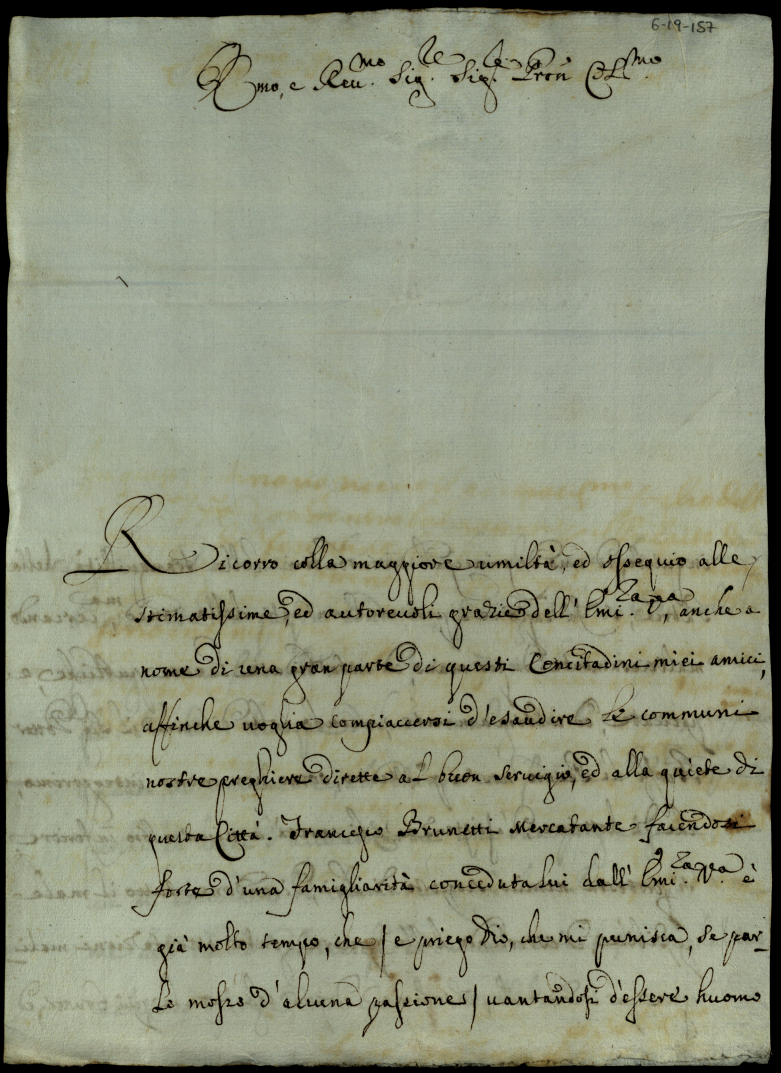 6-19-157
Emo, e Reu.mo Sig.re Sig.re Pron Col.mo
Ricorro colla maggiore umiltà, ed ossequio alle
stimatissime, ed autoreuoli grazie dell' Emi.za V.a, anche a
nome di una gran parte di questi Concittadini miei amici,
affinche uoglia compiaccersi d'esaudire le communi
nostre preghiere dirette al buon seruigio, ed alla quiete di
questa Città. Francesco Brunetti Mercatante facendosi
forte d'una famigliarità conceduta lui dall' Emi.za V.a è
già molto tempo, che / e priego Dio, che mi punisca, se par-
lo mosso d'alcuna passione / uantandosi d'essere huomo